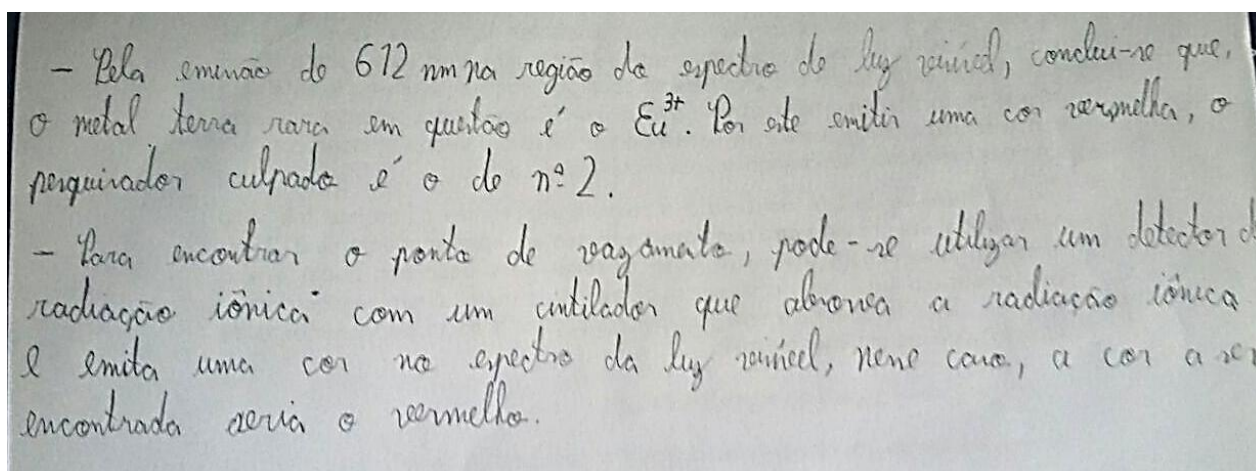 - Pela emissão de 612 nm na região do espectro de luz visível, conclui-se que,
o metal terra rara em questão é o Eu³⁺. Por este emitir uma cor vermelha, o
pesquisador culpado é o de nº 2.
- Para encontrar o ponto de vazamento, pode-se utilizar um detector d
radiação iônica com um cintilador que absorva a radiação iônica
e emita uma cor no espectro da luz visível, nesse caso, a cor a ser
encontrada seria o vermelho.